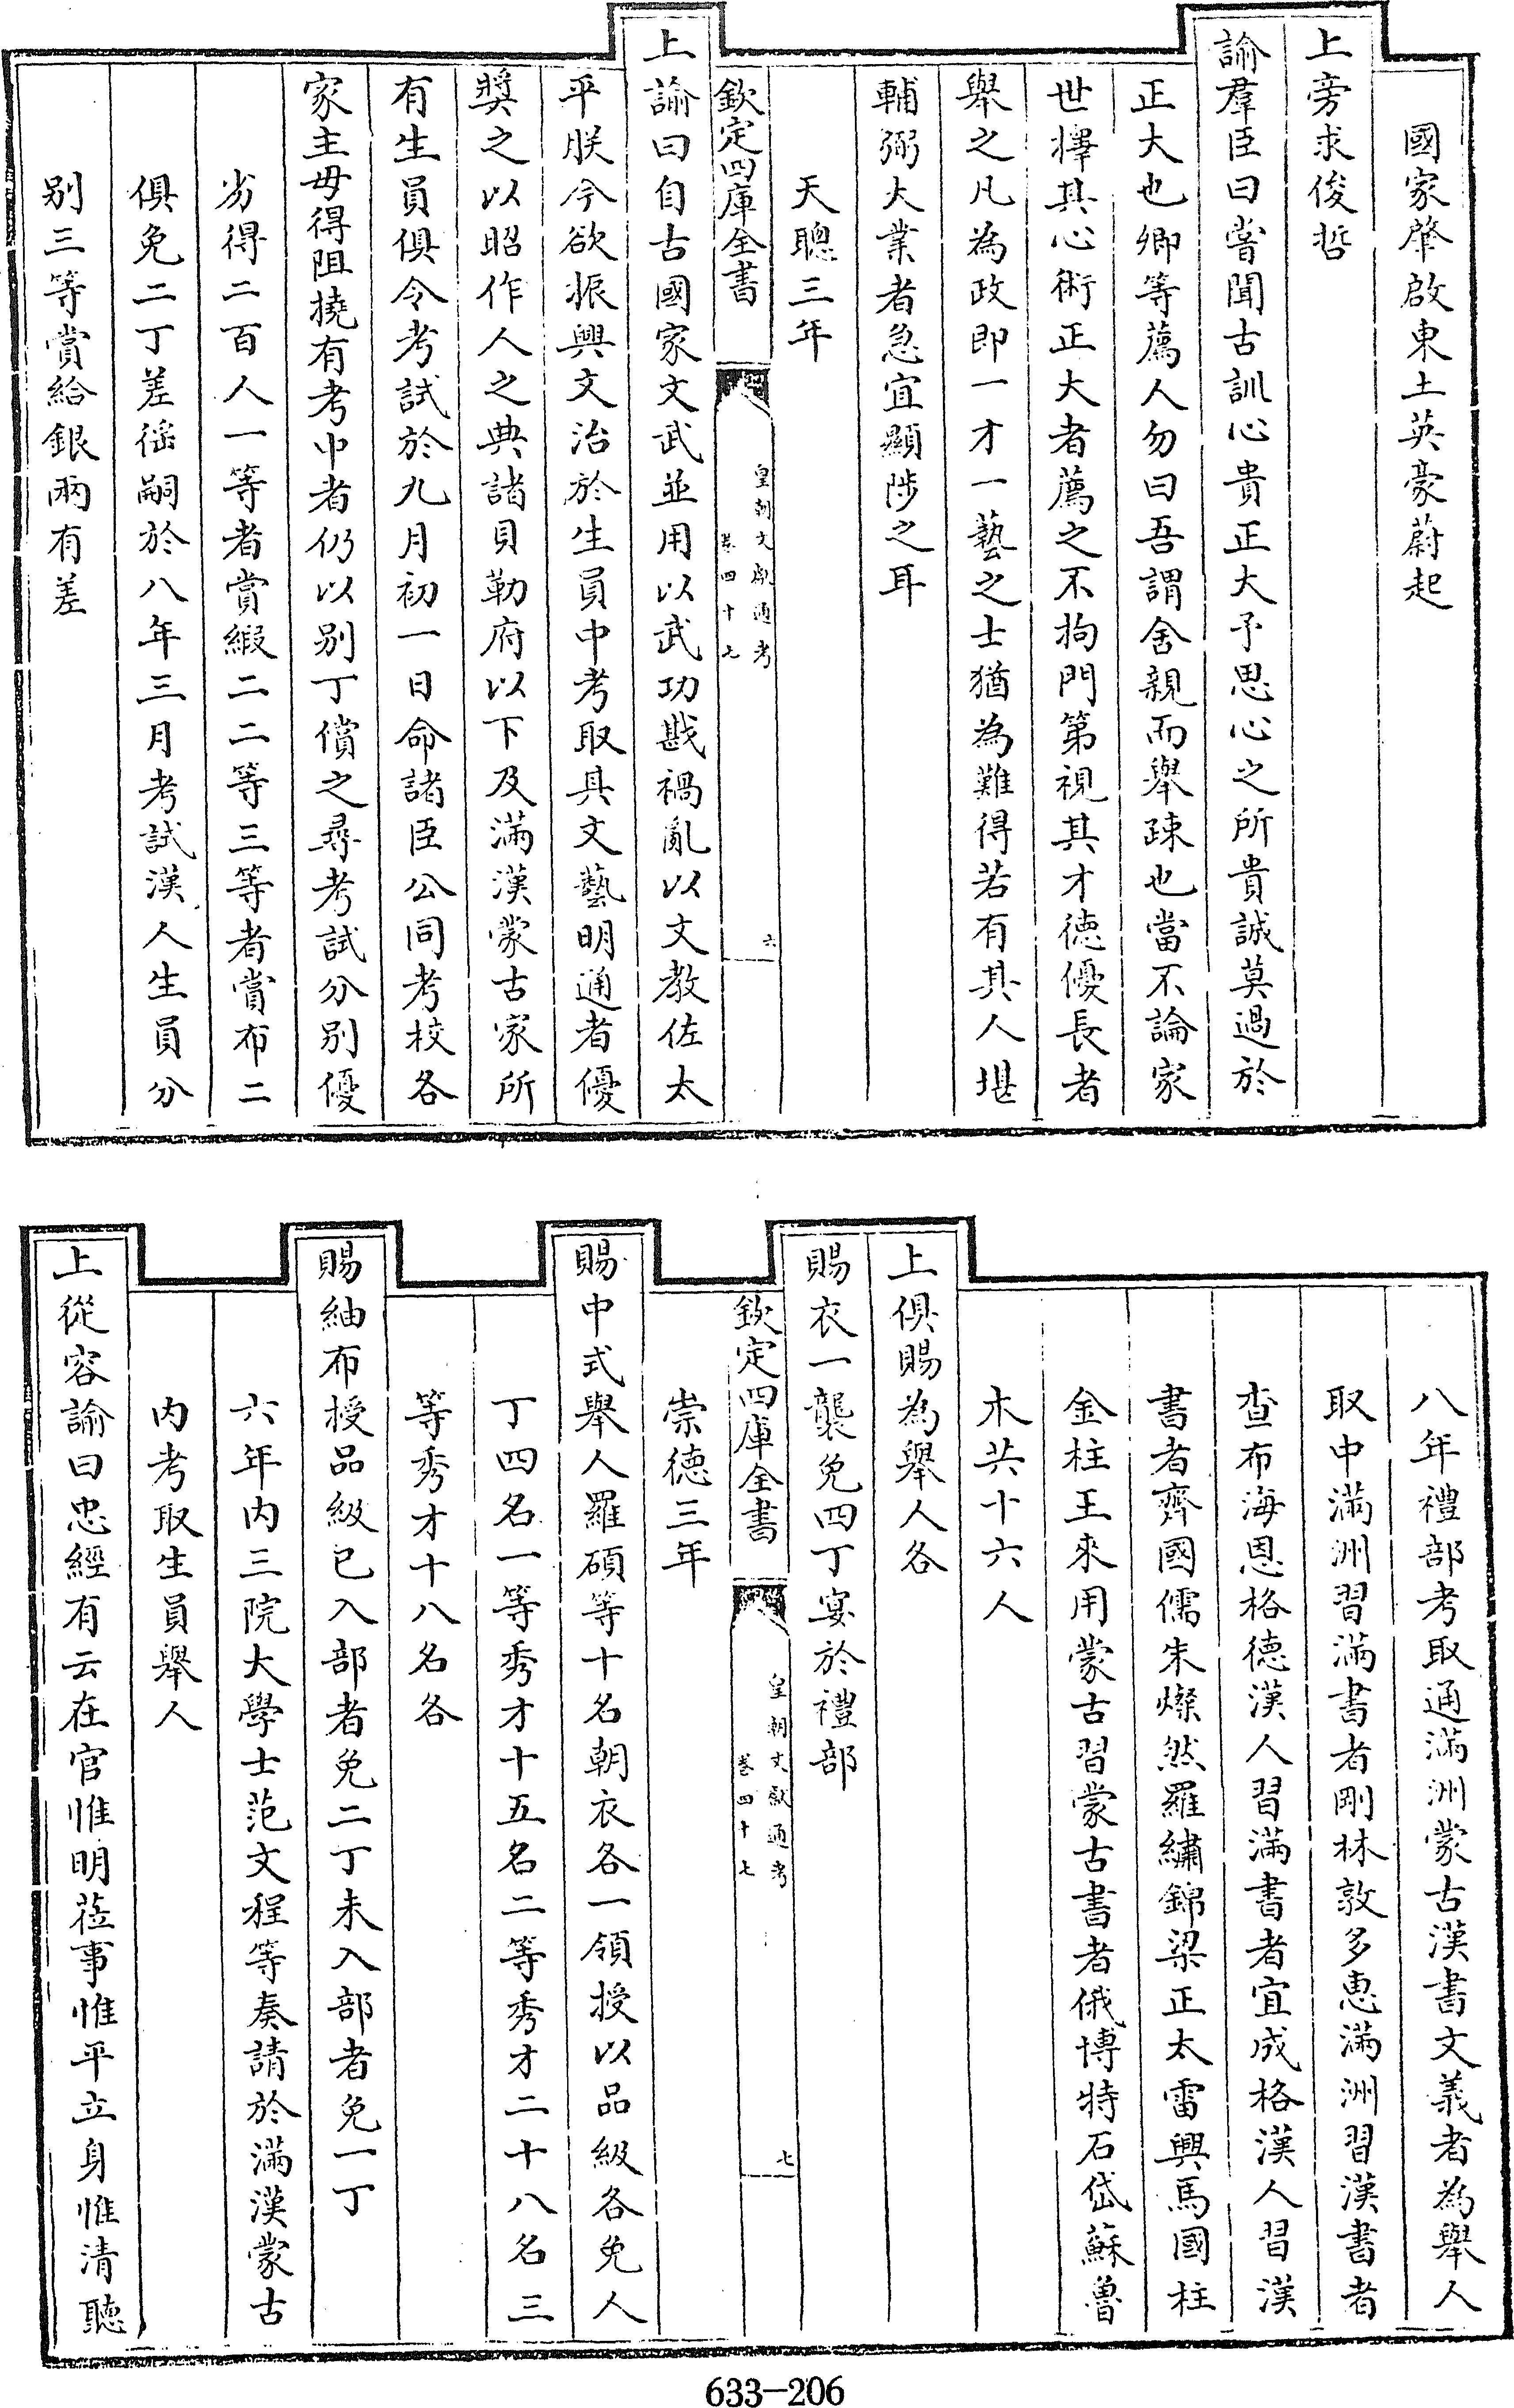 國家肇啟東土英豪蔚起
上旁求俊哲
諭羣臣曰嘗聞古訓心貴正大予思心之所貴誠莫過於
正大也卿等薦人勿曰吾謂舍親而舉疎也當不論家
世擇其心術正大者薦之不拘門第視其才德優長者
舉之凡為政即一才一藝之士猶為難得若有其人堪
輔弼大業者急宜顯陟之耳
天聰三年
欽定四庫全書
皇朝文獻通考
卷四十七
六
上諭曰自古國家文武並用以武功戡禍亂以文教佐太
平朕今欲振興文治於生員中考取其文藝明通者優
獎之以昭作人之典諸貝勒府以下及滿漢蒙古家所
有生員俱令考試於九月初一日命諸臣公同考校各
家主毋得阻撓有考中者仍以別丁償之尋考試分別優
劣得二百人一等者賞緞二二等三等者賞布二
俱免二丁差徭嗣於八年三月考試漢人生員分
別三等賞給銀兩有差
八年禮部考取通滿洲蒙古漢書文義者為舉人
取中滿洲習滿書者剛林敦多惠滿洲習漢書者
查布海恩格德漢人習滿書者宜成格漢人習漢
書者齊國儒朱燦然羅繡錦梁正太雷興馬國柱
金柱王來用蒙古習蒙古書者俄博特石岱蘇魯
木共十六人
上俱賜為舉人各
賜衣一襲免四丁宴於禮部
欽定四庫全書
皇朝文獻通考
卷四十七
七
崇德三年
賜中式舉人羅碩等十名朝衣各一領授以品級各免人
丁四名一等秀才十五名二等秀才二十八名三
等秀才十八名各
賜紬布授品級已入部者免二丁未入部者免一丁
六年內三院大學士范文程等奏請於滿漢蒙古
內考取生員舉人
上從容諭曰忠經有云在官惟明蒞事惟平立身惟清聽
633-206